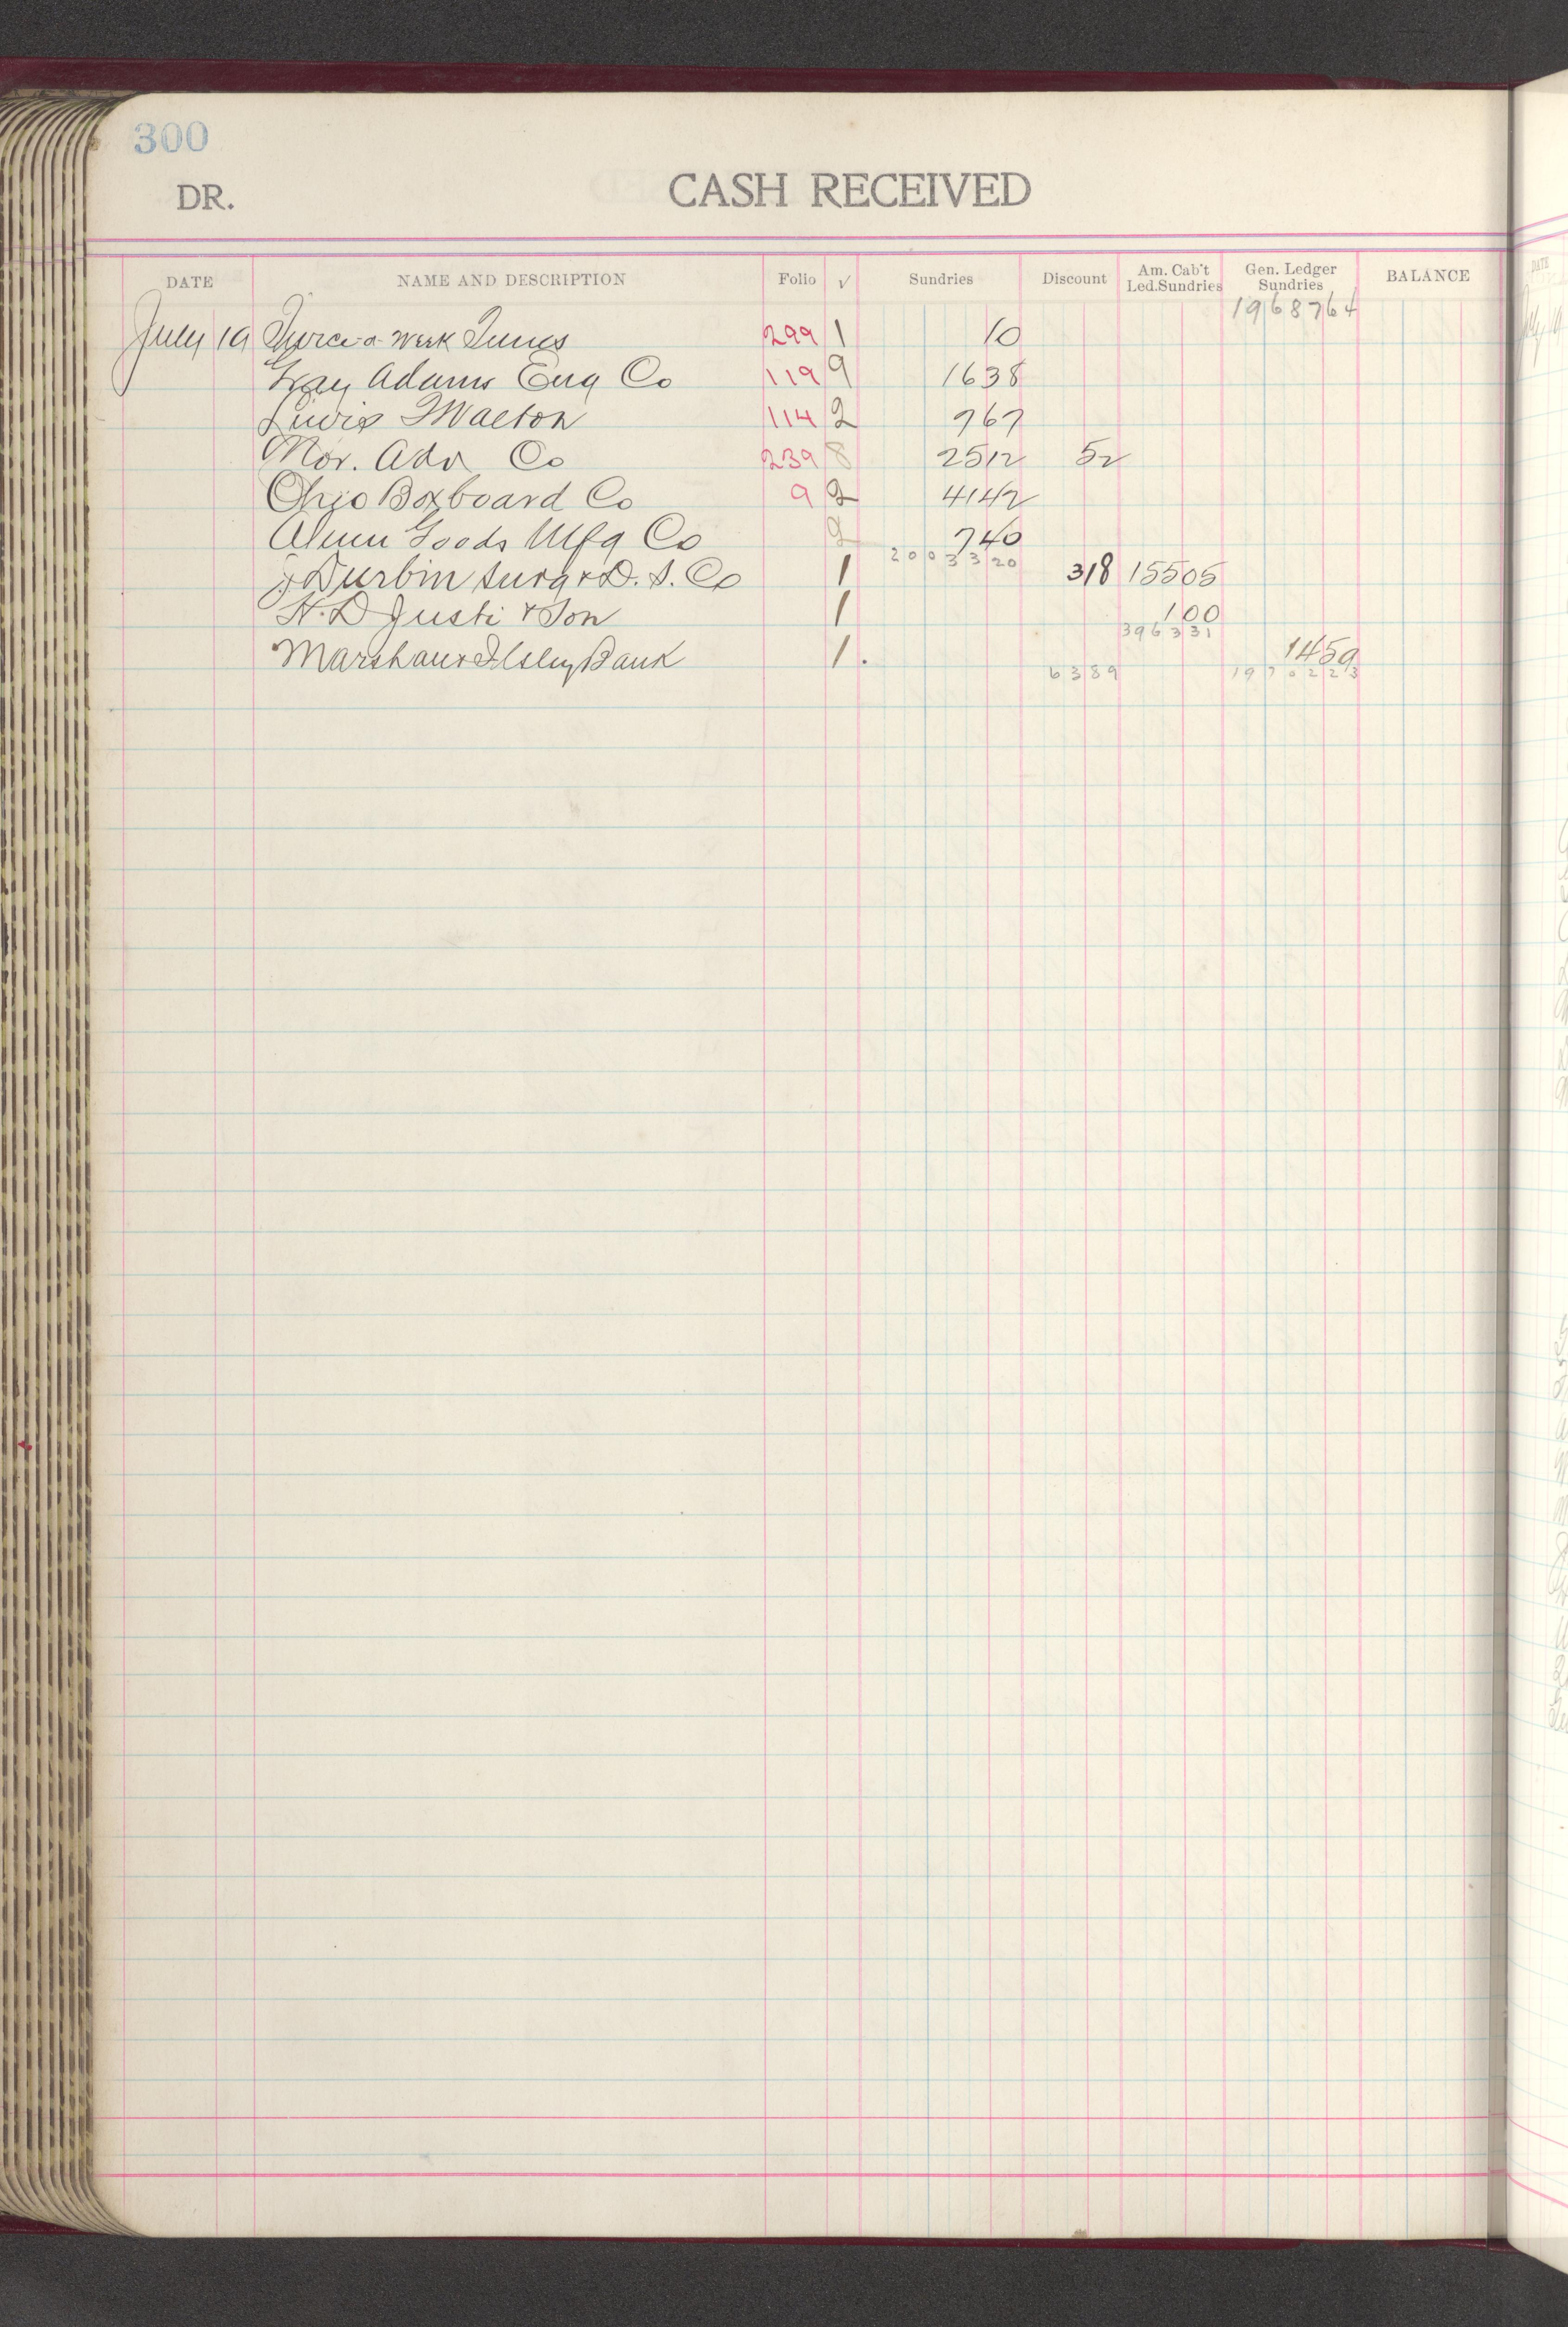 300
DR. CASH RECEIVED
DATE NAME AND DESCRIPTION Folio √ Sundries Discount Am. Cab't Led. Sundries Gen. Ledger Sundries BALANCE
1968764
July 19 Twice-a-Week Times 299 1 10
Gray Adams Eng Co 119 9 1638
Lewis Walton 114 2 767
Mor. Adv Co 239 8 2512 52
Ohio Boxboard Co 9 2 4142
Alum Goods Mfg Co 2 740
2003320
Durbin Surg & D. S. Co 1 318 15505
H. D Justi & Son 1 100
396331
Marshall & Ilsley Bank 1. 1459
6389 1970223